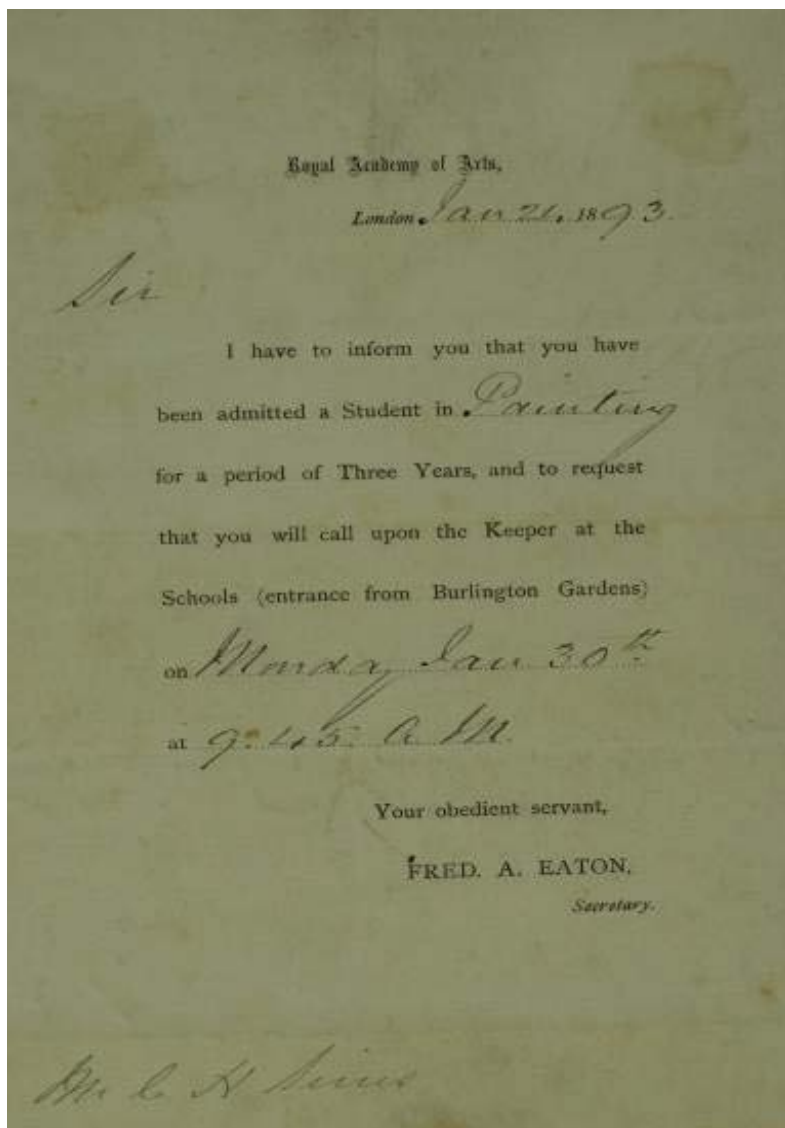 Royal Academy of Arts,
London, Jan 21. 1893.
Sir
I have to inform you that you have
been admitted a Student in Painting
for a period of Three Years, and to request
that you will call upon the Keeper at the
Schools (entrance from Burlington Gardens)
on Monday Jan 30th
at 9.45. A M.
Your obedient servant,
FRED. A. EATON,
Secretary.
Mr C H Sims